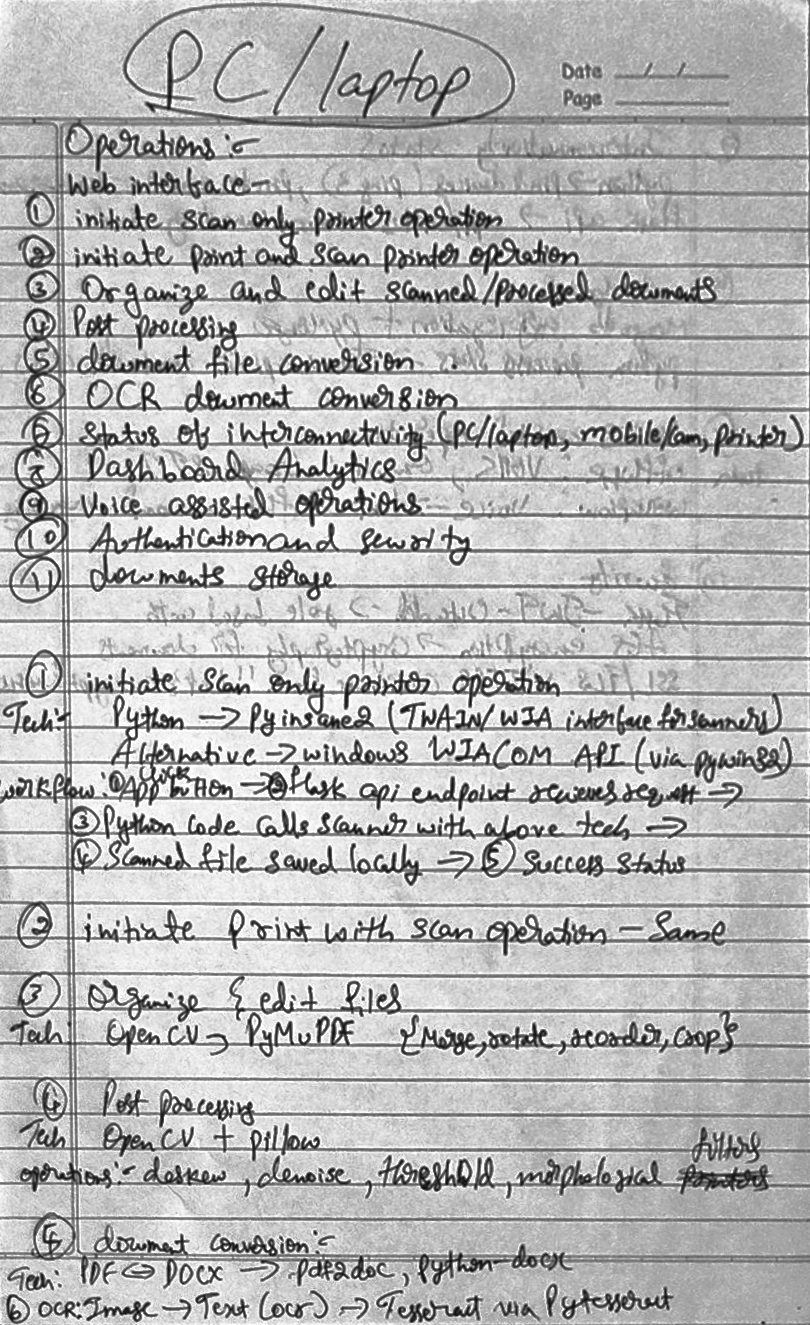 PC/laptop
Date __/__/__
Page ______
Operations :-
Web interface -
① initiate scan only printer operation
② initiate print and scan printer operation
③ Organize and edit scanned/processed documents
④ Post processing
⑤ document file conversion .
⑥ OCR document conversion
Status of interconnectivity (PC/laptop, mobile/cam, printer)
⑧ Dashboard Analytics
⑨ Voice assisted operations
⑩ Authentication and security
⑪ documents storage
① initiate scan only printer operation
Tech:- Python → Pyinsane2 (TWAIN/WIA interface for scanners)
Alternative → windows WIA COM API (via pywin32)
workflow: ① App click button → ② flask api endpoint receives request →
③ Python code calls scanner with above tech →
④ Scanned file saved locally → ⑤ Success status
② initiate print with scan operation - Same
③ Organize & edit files
Tech: OpenCV → PyMuPDF {Merge, rotate, reorder, crop}
④ Post processing
Tech OpenCV + pillow
operations:- deskew, denoise, threshold, morphological filters
⑤ document conversion :-
Tech: PDF ⇔ DOCX → pdf2doc, python-docx
⑥ OCR: Image → Text (ocr) → Tesseract via Pytesseract